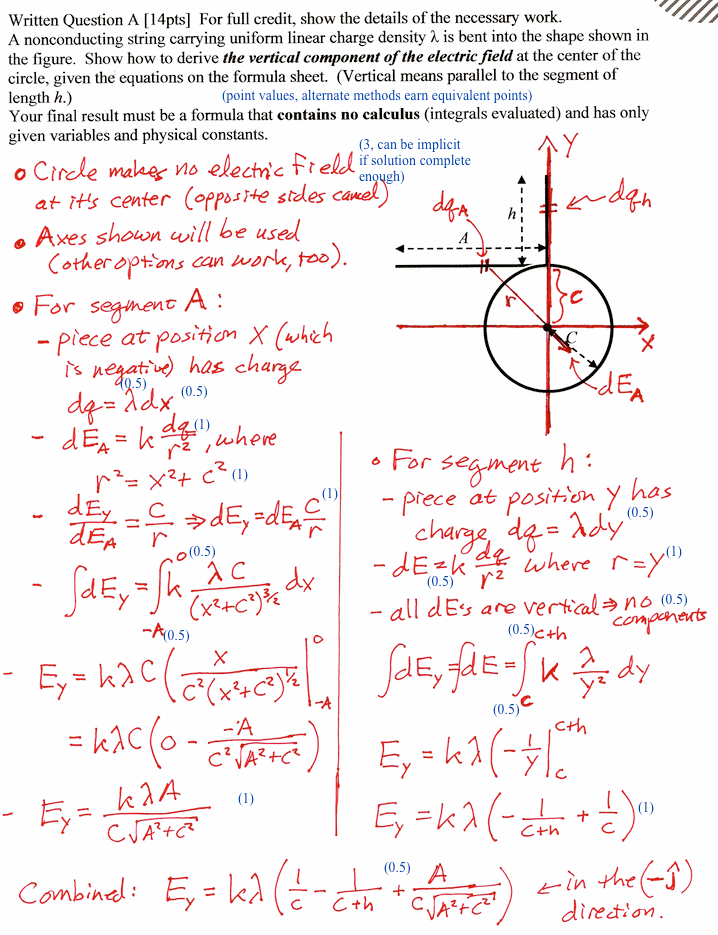 Written Question A [14pts] For full credit, show the details of the necessary work.
A nonconducting string carrying uniform linear charge density λ is bent into the shape shown in
the figure. Show how to derive the vertical component of the electric field at the center of the
circle, given the equations on the formula sheet. (Vertical means parallel to the segment of
length h.) (point values, alternate methods earn equivalent points)
Your final result must be a formula that contains no calculus (integrals evaluated) and has only
given variables and physical constants.
• Circle makes no electric field
at it's center (opposite sides cancel)
(3, can be implicit
if solution complete
enough)
• Axes shown will be used
(other options can work, too).
• For segment A:
- piece at position X (which
is negative) has charge
(0.5)
dq = λdx (0.5)
- dE_A = k dq/r² (1), where
r² = x² + c² (1)
- dE_y/dE_A = C/r ⇒ dE_y = dE_A C/r (1)
- ∫dE_y = ∫_{-A}^{0} k λC/(x²+c²)^{3/2} dx
(0.5)
(0.5)
- E_y = kλC (x/(c²(x²+c²)^{1/2}) |_{-A}^{0}
= kλC (0 - -A/(C²√(A²+C²)))
- E_y = kλA/(C√(A²+C²)) (1)
Y
dq_A
dq_h
h
A
r
C
C
X
dE_A
• For segment h:
- piece at position y has
charge dq = λdy (0.5)
- dE = k dq/r² where r = y (1)
(0.5)
- all dE's are vertical ⇒ no components (0.5)
(0.5)
∫dE_y = ∫dE = ∫_{C}^{C+h} k λ/y² dy
(0.5)
E_y = kλ(-1/y)|_{C}^{C+h}
E_y = kλ(-1/(C+h) + 1/C) (1)
Combined: E_y = kλ(1/C - 1/(C+h) + A/(C√(A²+C²))) ← in the (-ĵ)
(0.5)
direction.